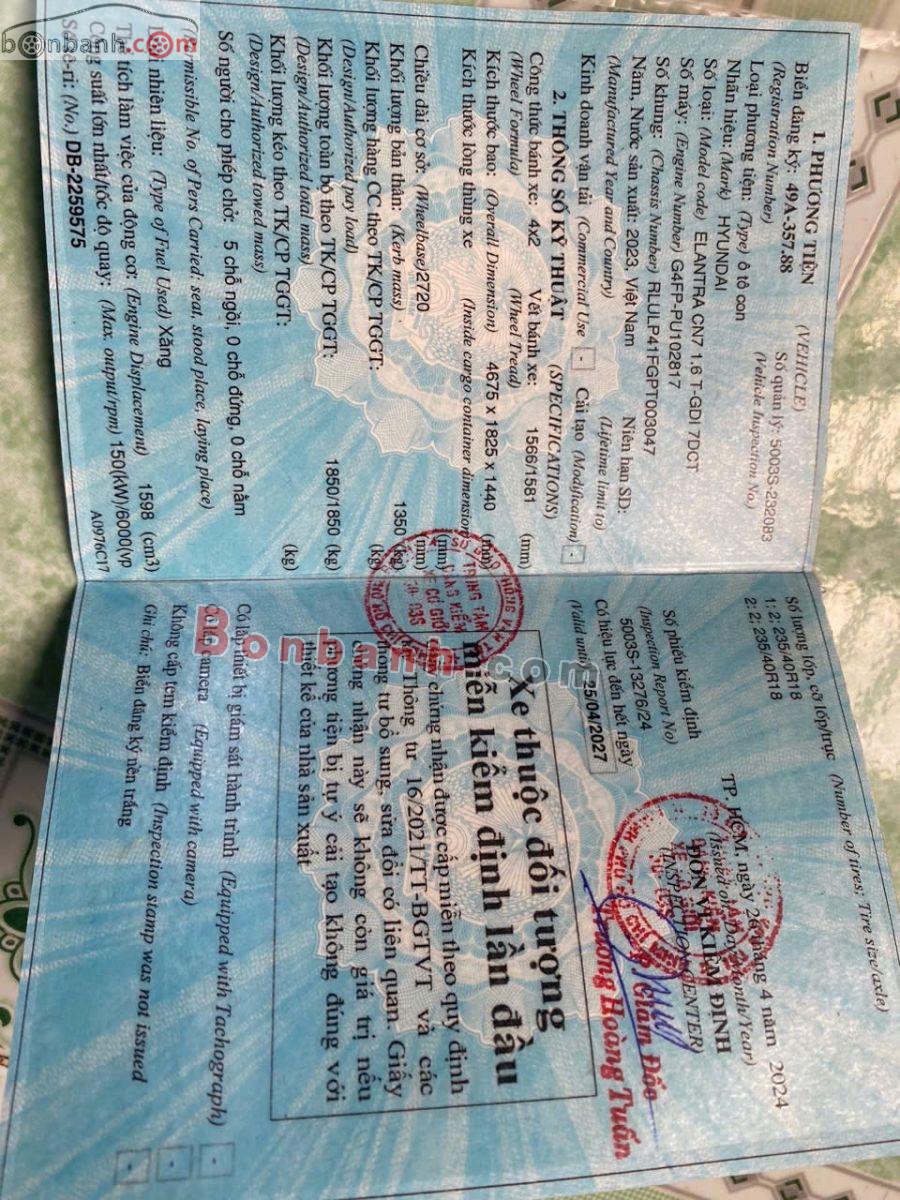 bonbanh.com
1. PHƯƠNG TIỆN (VEHICLE)
Biển đăng ký: 49A-357.88 Số quản lý: 5003S-232083
(Registration Number) (Vehicle Inspection No.)
Loại phương tiện: (Type) ô tô con
Nhãn hiệu: (Mark) HYUNDAI
Số loại: (Model code) ELANTRA CN7 1.6 T-GDI 7DCT
Số máy: (Engine Number) G4FP-PU102817
Số khung: (Chassis Number) RLULP41FGPT003047
Năm, Nước sản xuất: 2023, Việt Nam Niên hạn SD:
(Manufactured Year and Country) (Lifetime limit to)
Kinh doanh vận tải (Commercial Use) - Cải tạo (Modification) -
2. THÔNG SỐ KỸ THUẬT (SPECIFICATIONS)
Công thức bánh xe: 4x2 Vết bánh xe: 1566/1581 (mm)
(Wheel Formula) (Wheel Tread)
Kích thước bao: (Overall Dimension) 4675 x 1825 x 1440 (mm)
Kích thước lòng thùng xe (Inside cargo container dimension) (mm)
Chiều dài cơ sở: (Wheelbase) 2720 (mm)
Khối lượng bản thân: (Kerb mass) 1350 (kg)
Khối lượng hàng CC theo TK/CP TGGT: (kg)
(Design/Authorized pay load)
Khối lượng toàn bộ theo TK/CP TGGT: 1850/1850 (kg)
(Design/Authorized total mass)
Khối lượng kéo theo TK/CP TGGT: (kg)
(Design/Authorized towed mass)
Số người cho phép chở: 5 chỗ ngồi, 0 chỗ đứng, 0 chỗ nằm
(Permissible No. of Pers Carried: seat, stood place, laying place)
nhiên liệu: (Type of Fuel Used) Xăng
tích làm việc của động cơ: (Engine Displacement) 1598 (cm3)
suất lớn nhất/tốc độ quay: (Max. output/rpm) 150(kW)/6000(vp
Sê-ri: (No.) DB-2259575 A0976C17
Số lượng lốp, cỡ lốp/trục (Number of tires; Tire size/axle)
1: 2; 235/40R18
2: 2; 235/40R18
Số phiếu kiểm định
(Inspection Report No)
5003S-13276/24
Có hiệu lực đến hết ngày
(Valid until) 25/04/2027
TP. HCM, ngày 26 tháng 4 năm 2024
(Issued on: Day/Month/Year)
ĐƠN VỊ KIỂM ĐỊNH
(INSPECTION CENTER)
Giám Đốc
Trương Hoàng Tuấn
Xe thuộc đối tượng
miễn kiểm định lần đầu
chứng nhận được cấp miễn theo quy định
Thông tư 16/2021/TT-BGTVT và các
thông tư bổ sung, sửa đổi có liên quan. Giấy
chứng nhận này sẽ không còn giá trị nếu
phương tiện bị tự ý cải tạo không đúng với
thiết kế của nhà sản xuất
Có lắp thiết bị giám sát hành trình (Equipped with Tachograph) -
Có lắp camera (Equipped with camera) -
Không cấp tem kiểm định (Inspection stamp was not issued -
Ghi chú: Biển đăng ký nền trắng
Bonbanh.com